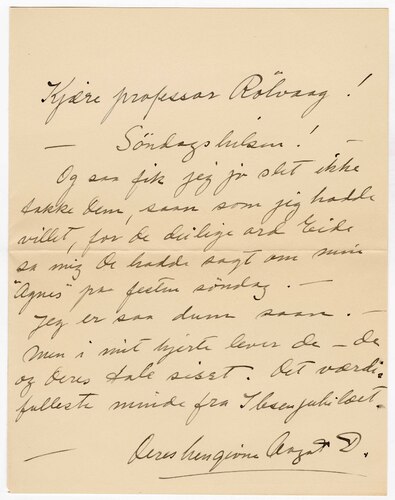 Kjære professor Rölvaag!
— Söndagshilsen! —
Og saa fik jeg jo slet ikke
takke Dem, saan som jeg hadde
villet, for de deilige ord Eide
sa mig De hadde sagt om min
"Agnes" på festen söndag. —
Jeg er saa dum saan. —
Men i mit hjerte lever de — de
og Deres tale sidst. Det værdi-
fulleste minde fra Ibsenjubilæet.
— Deres hengivne D.